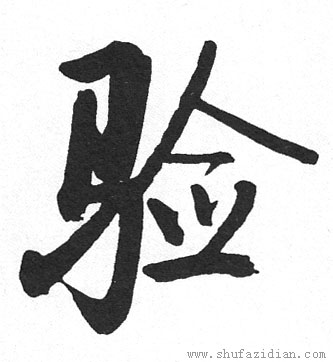 验
www.shufazidian.com